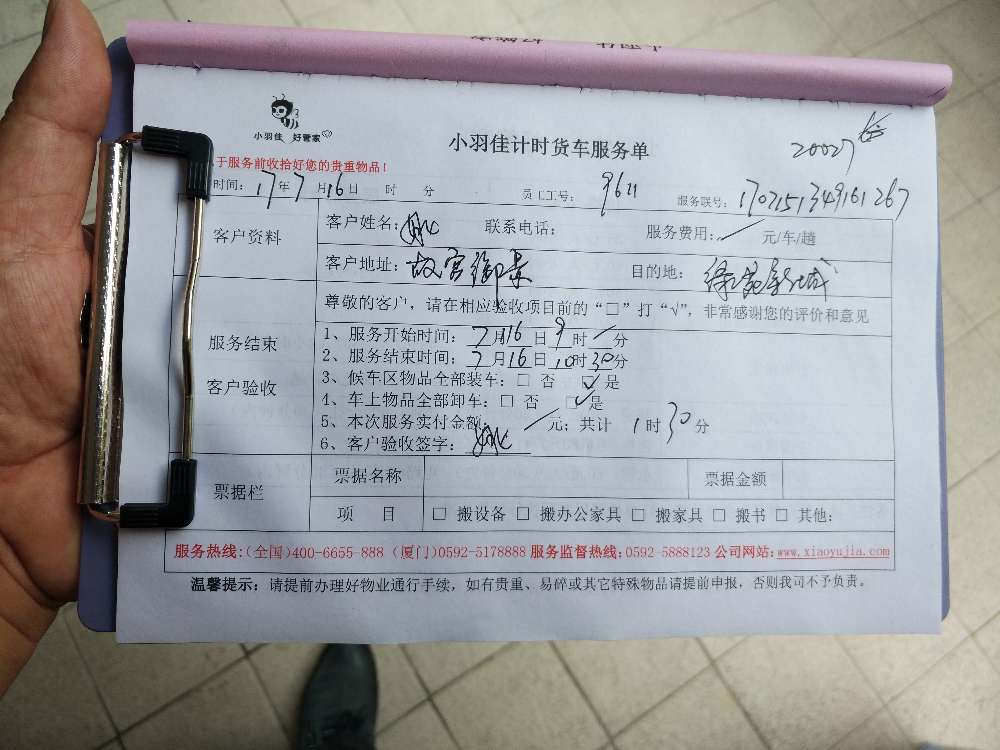 小羽佳 好管家
小羽佳计时货车服务单
20027
于服务前收拾好您的贵重物品！
时间：17年7月16日 时 分 员工工号：9611 服务联号：1707151349161267
客户资料
客户姓名： 联系电话： 服务费用：／元/车/趟
客户地址：故宫御景 目的地：绿苑新城
尊敬的客户，请在相应验收项目前的“□”打“√”，非常感谢您的评价和意见
服务结束
客户验收
1、服务开始时间：7月16日9时／分
2、服务结束时间：7月16日10时30分
3、候车区物品全部装车：□ 否 ☑ 是
4、车上物品全部卸车：□ 否 ☑ 是
5、本次服务实付金额：／元；共计 1时30分
6、客户验收签字：
票据栏
票据名称 票据金额
项 目 □ 搬设备 □ 搬办公家具 □ 搬家具 □ 搬书 □ 其他：
服务热线：(全国)400-6655-888 (厦门)0592-5178888 服务监督热线：0592-5888123 公司网站：www.xiaoyujia.com
温馨提示：请提前办理好物业通行手续，如有贵重、易碎或其它特殊物品请提前申报，否则我司不予负责。